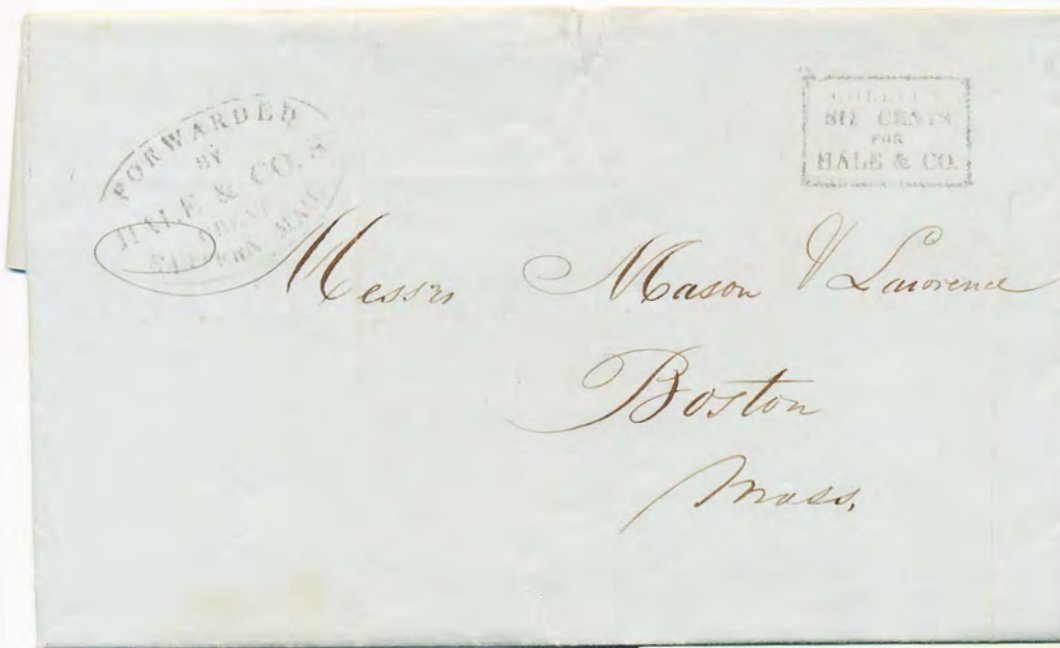 FORWARDED
BY
HALE & CO. S
MAIL
COLLECT
SIX CENTS
FOR
HALE & CO.
Messrs Mason & Lawrence
Boston
Mass.